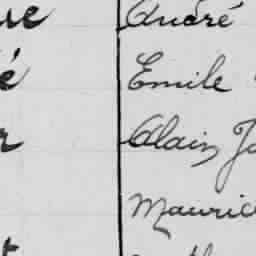 ue André
é Emile
r Alain
Mauric
t